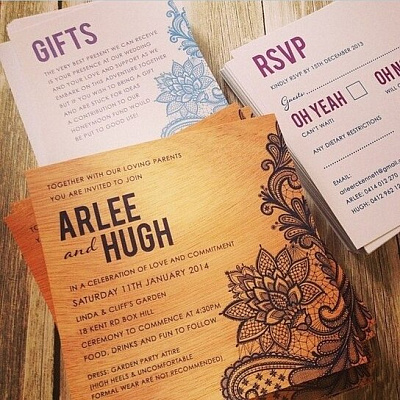 GIFTS
THE VERY BEST PRESENT WE CAN RECEIVE
IS YOUR PRESENCE AT OUR WEDDING
AND YOUR LOVE AND SUPPORT AS WE
EMBARK ON THIS ADVENTURE TOGETHER
BUT IF YOU WISH TO BRING A GIFT
AND ARE STUCK FOR IDEAS
A CONTRIBUTION TO OUR
HONEYMOON FUND WOULD
BE PUT TO GOOD USE!
RSVP
KINDLY RSVP BY 15TH DECEMBER 2013
Guests
OH YEAH
CAN'T WAIT!
OH N
WILL
ANY DIETARY RESTRICTIONS
EMAIL:
arleerckennett@gmail.com
ARLEE: 0414 012 270
HUGH: 0412 962 12
TOGETHER WITH OUR LOVING PARENTS
YOU ARE INVITED TO JOIN
ARLEE
and HUGH
IN A CELEBRATION OF LOVE AND COMMITMENT
SATURDAY 11TH JANUARY 2014
LINDA & CLIFF'S GARDEN
18 KENT RD BOX HILL
CEREMONY TO COMMENCE AT 4:30PM
FOOD, DRINKS AND FUN TO FOLLOW
DRESS: GARDEN PARTY ATTIRE
(HIGH HEELS & UNCOMFORTABLE
FORMAL WEAR ARE NOT RECOMMENDED)